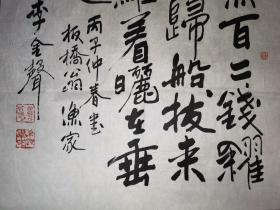 百二錢糴
歸船拔来
着曬在垂
丙子仲春書
板橋翁漁家
李金聲